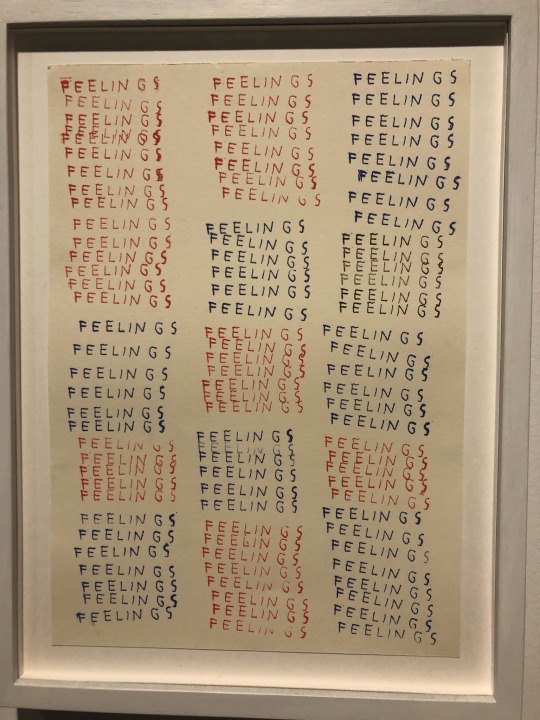 FEELINGS
FEELINGS
FEELINGS
FEELINGS
FEELINGS
FEELINGS
FEELINGS
FEELINGS
FEELINGS
FEELINGS
FEELINGS
FEELINGS
FEELINGS
FEELINGS
FEELINGS
FEELINGS
FEELINGS
FEELINGS
FEELINGS
FEELINGS
FEELINGS
FEELINGS
FEELINGS
FEELINGS
FEELINGS
FEELINGS
FEELINGS
FEELINGS
FEELINGS
FEELINGS
FEELINGS
FEELINGS
FEELINGS
FEELINGS
FEELINGS
FEELINGS
FEELINGS
FEELINGS
FEELINGS
FEELINGS
FEELINGS
FEELINGS
FEELINGS
FEELINGS
FEELINGS
FEELINGS
FEELINGS
FEELINGS
FEELINGS
FEELINGS
FEELINGS
FEELINGS
FEELINGS
FEELINGS
FEELINGS
FEELINGS
FEELINGS
FEELINGS
FEELINGS
FEELINGS
FEELINGS
FEELINGS
FEELINGS
FEELINGS
FEELINGS
FEELINGS
FEELINGS
FEELINGS
FEELINGS
FEELINGS
FEELINGS
FEELINGS
FEELINGS
FEELINGS
FEELINGS
FEELINGS
FEELINGS
FEELINGS
FEELINGS
FEELINGS
FEELINGS
FEELINGS
FEELINGS
FEELINGS
FEELINGS
FEELINGS
FEELINGS
FEELINGS
FEELINGS
FEELINGS
FEELINGS
FEELINGS
FEELINGS
FEELINGS
FEELINGS
FEELINGS
FEELINGS
FEELINGS
FEELINGS
FEELINGS